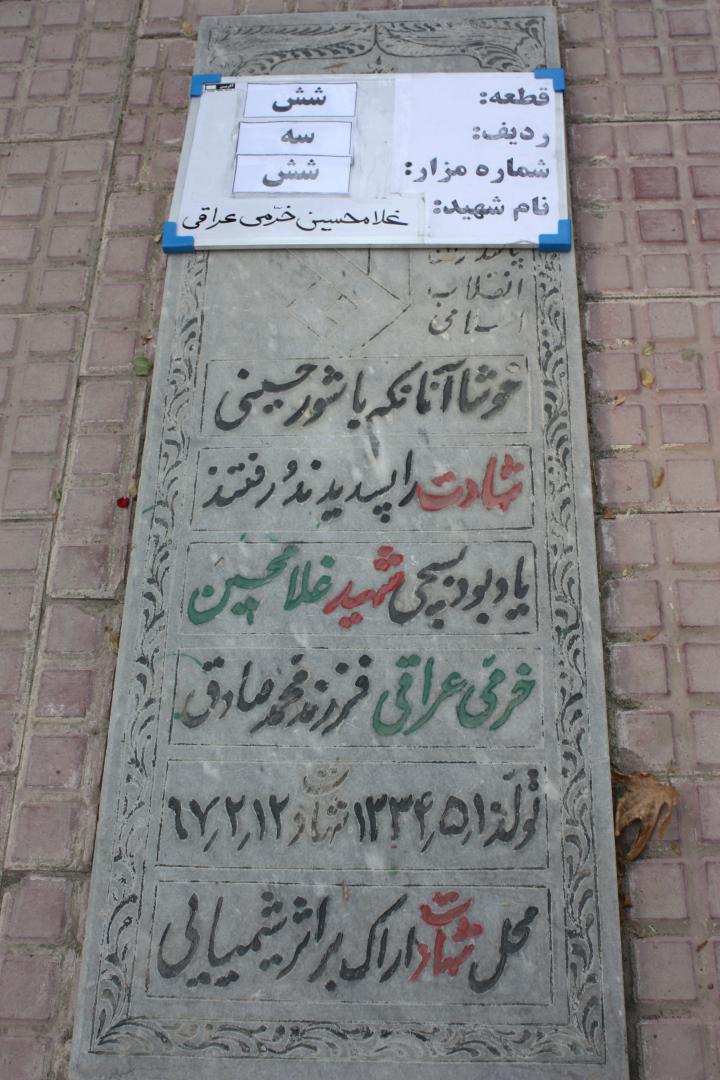 قطعه: شش
ردیف: سه
شماره مزار: شش
نام شهید: غلامحسین خرّمی عراقی
انقلاب
اسلامی
خوشا آنانکه با شور حسینی
شهادت را پسندیدند و رفتند
یادبود بسیجی شهید غلامحسین
خرمّی عراقی فرزند محمدصادق
تولّد ۱ر۵ر۱۳۳۴ شهادت ۱۲ر۲ر۶۷
محل شهادت اراک بر اثر شیمیایی